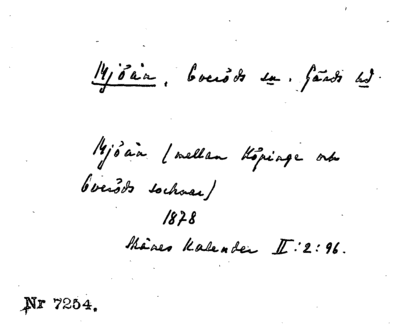 Mjöån, Everöds sn. Gärds hd.
Mjöån (mellan Köpinge och
Everöds socknar)
1878
Skånes Kalender II:2:96.
Nr 7254.